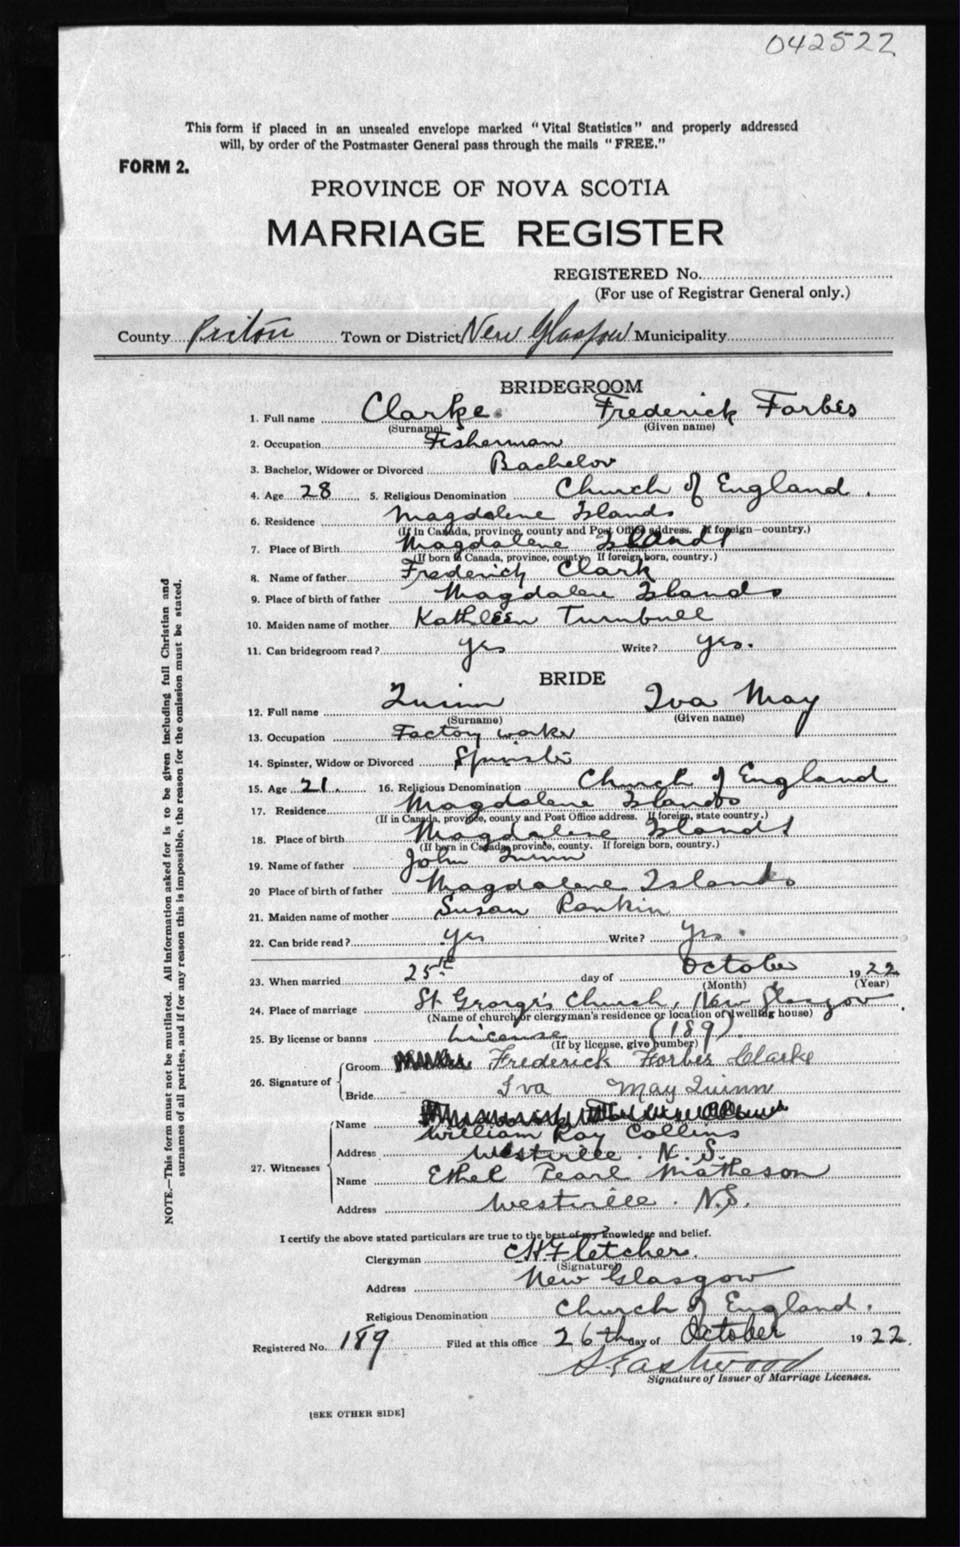 042522
This form if placed in an unsealed envelope marked "Vital Statistics" and properly addressed
will, by order of the Postmaster General pass through the mails "FREE."
FORM 2.
PROVINCE OF NOVA SCOTIA
MARRIAGE REGISTER
REGISTERED No.
(For use of Registrar General only.)
County Pictou Town or District New Glasgow Municipality
BRIDEGROOM
1. Full name Clarke Frederick Forbes
(Surname) (Given name)
2. Occupation Fisherman
3. Bachelor, Widower or Divorced Bachelor
4. Age 28 5. Religious Denomination Church of England.
6. Residence Magdalene Islands
(If in Canada, province, county and Post Office address. If foreign—country.)
7. Place of Birth Magdalene Islands
(If born in Canada, province, county. If foreign born, country.)
8. Name of father Frederick Clark
9. Place of birth of father Magdalene Islands
10. Maiden name of mother Kathleen Turnbull
11. Can bridegroom read? yes Write? yes.
BRIDE
12. Full name Quinn Iva May
(Surname) (Given name)
13. Occupation Factory worker
14. Spinster, Widow or Divorced Spinster
15. Age 21. 16. Religious Denomination Church of England
17. Residence Magdalene Islands
(If in Canada, province, county and Post Office address. If foreign, state country.)
18. Place of birth Magdalene Islands
(If born in Canada, province, county. If foreign born, country.)
19. Name of father John Quinn
20 Place of birth of father Magdalene Islands
21. Maiden name of mother Susan Rankin
22. Can bride read? yes Write? yes.
23. When married 25th day of October 1922
(Month) (Year)
24. Place of marriage St George's Church, New Glasgow
(Name of church or clergyman's residence or location of dwelling house)
25. By license or banns License (189)
(If by license, give number)
26. Signature of
Groom Frederick Forbes Clarke
Bride Iva May Quinn
27. Witnesses
Name William Roy Collins
Address Westville. N.S.
Name Ethel Pearl Matheson
Address Westville. N.S.
I certify the above stated particulars are true to the best of my knowledge and belief.
Clergyman C H Fletcher.
(Signature)
Address New Glasgow
Religious Denomination Church of England.
Registered No. 189 Filed at this office 26th day of October 1922.
S Eastwood
Signature of Issuer of Marriage Licenses.
[SEE OTHER SIDE]
NOTE.—This form must not be mutilated. All information asked for is to be given including full Christian and
surnames of all parties, and if for any reason this is impossible, the reason for the omission must be stated.